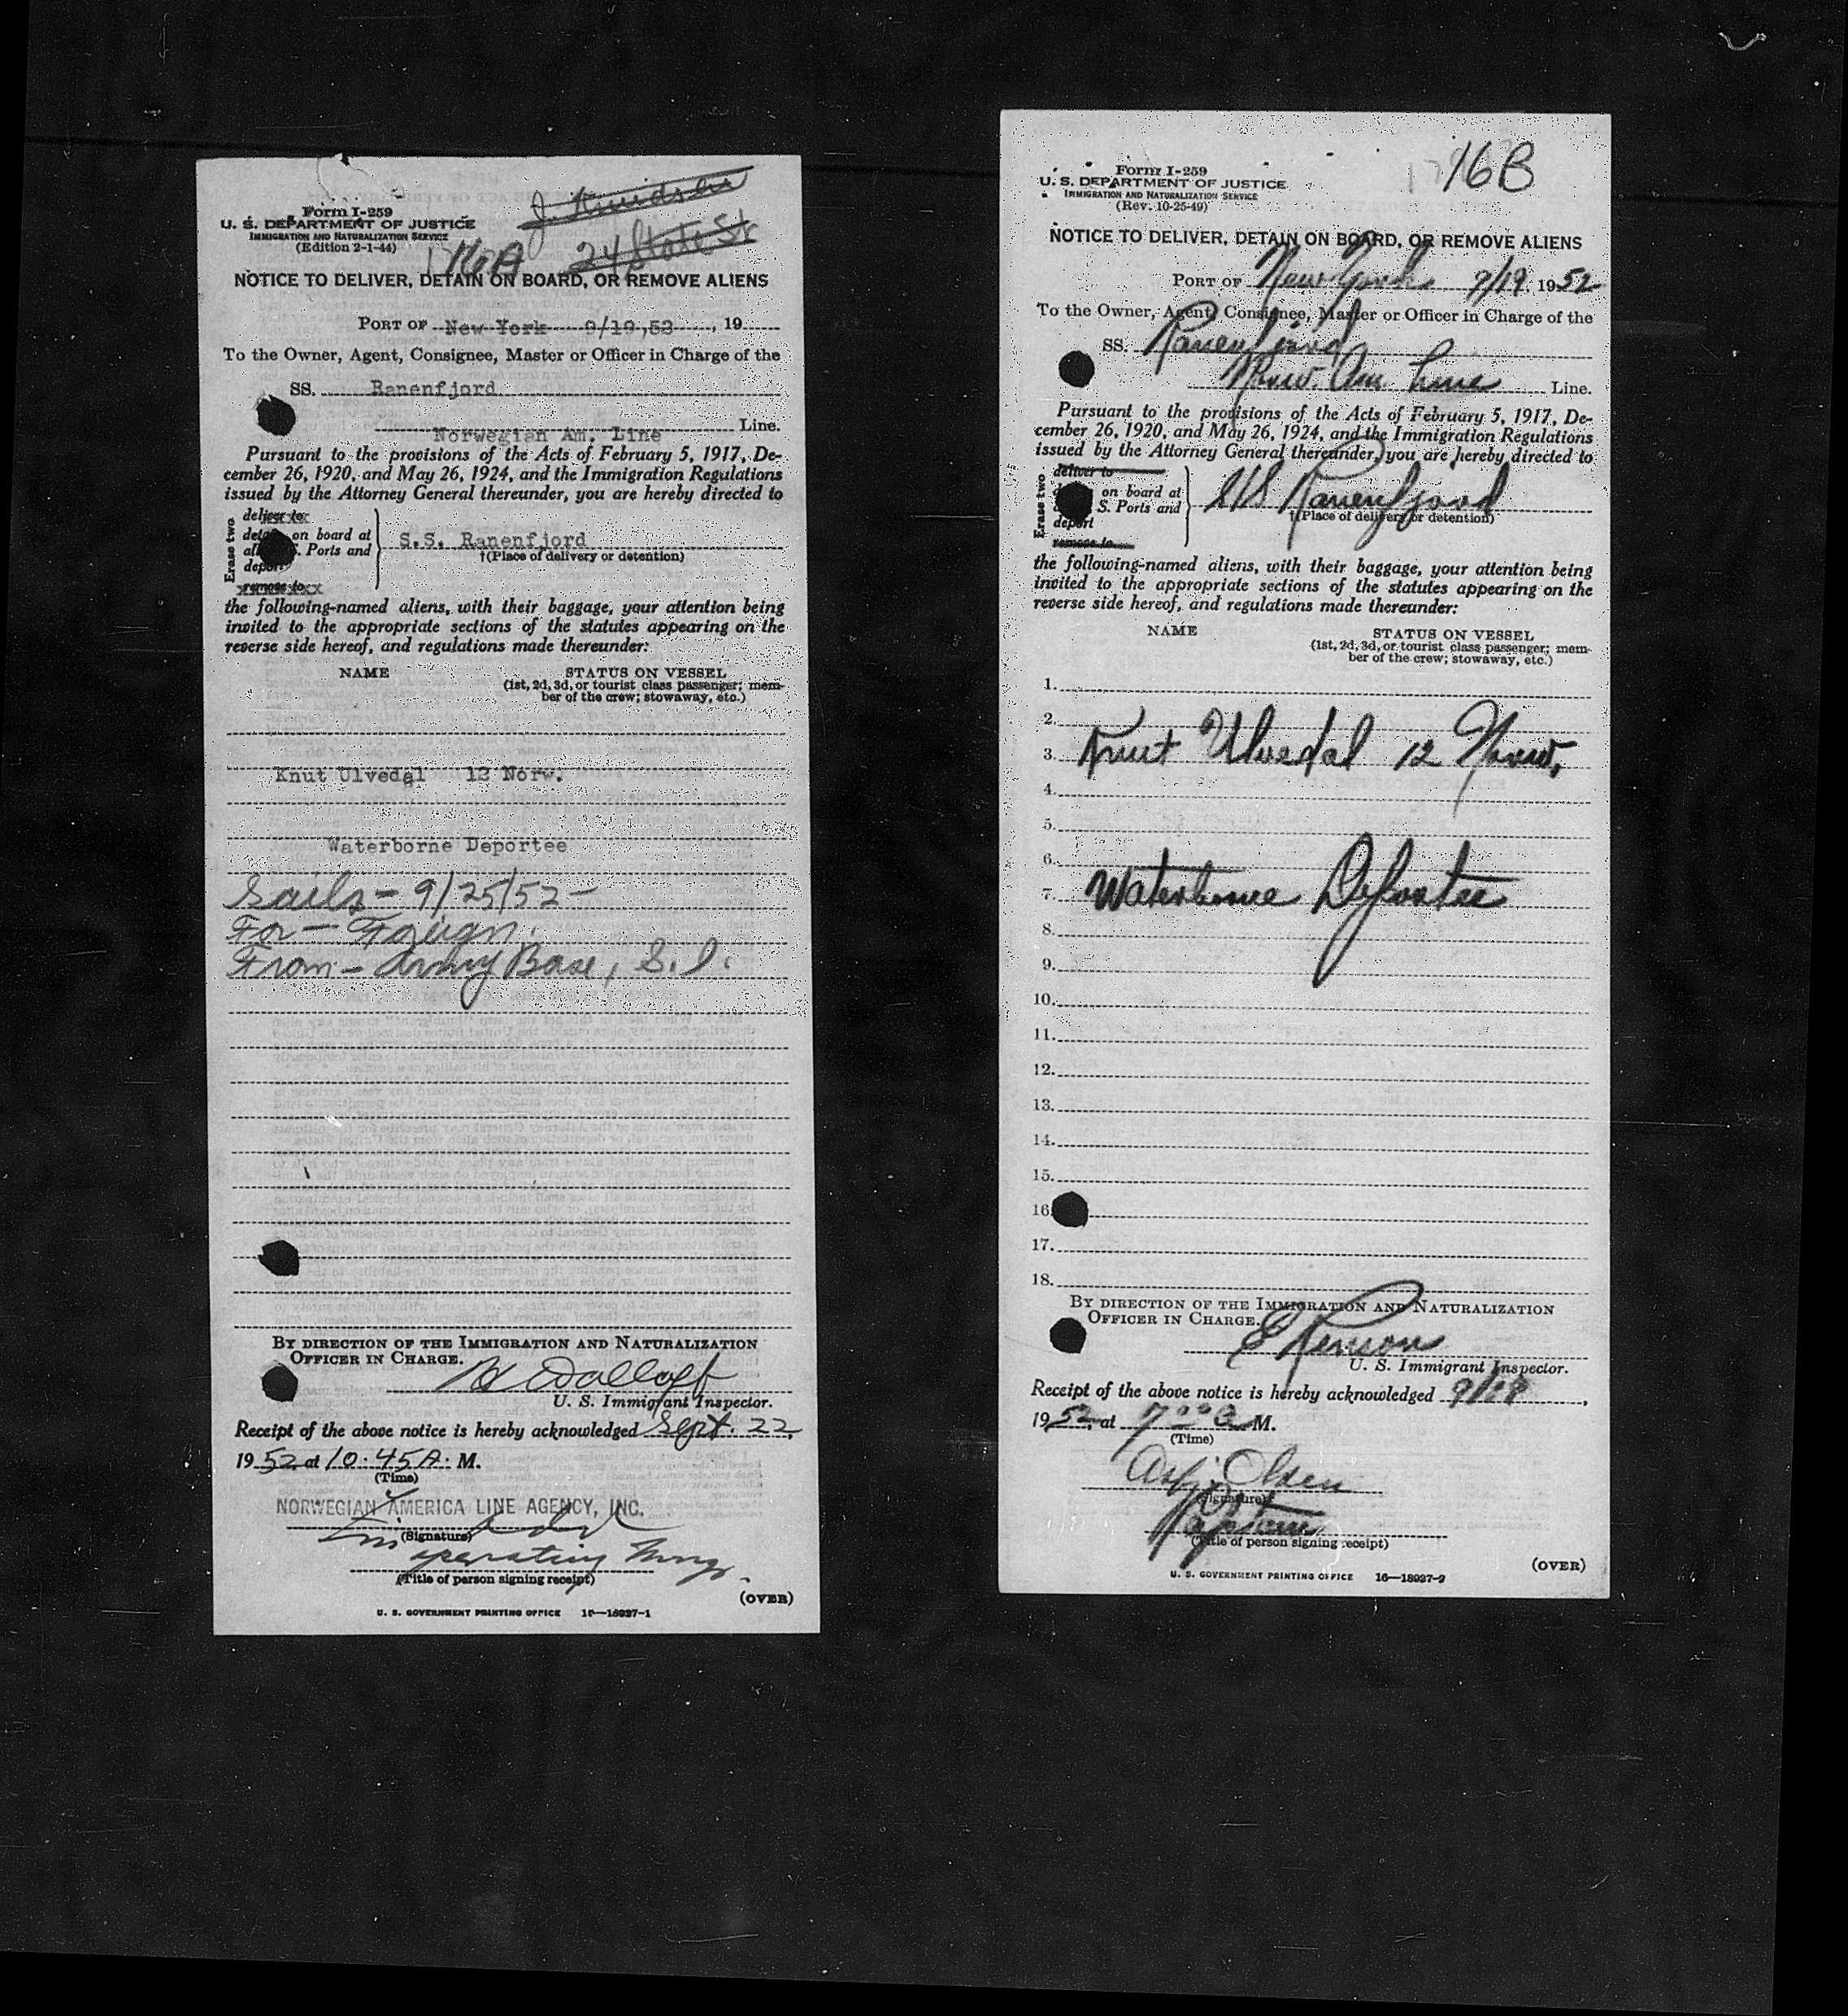 J. Knudsen
24 State St
16A
Form I-259
U. S. DEPARTMENT OF JUSTICE
IMMIGRATION AND NATURALIZATION SERVICE
(Edition 2-1-44)
NOTICE TO DELIVER, DETAIN ON BOARD, OR REMOVE ALIENS
PORT OF New York 9/19,52, 19
To the Owner, Agent, Consignee, Master or Officer in Charge of the
SS. Ranenfjord
Norwegian Am. Line Line.
Pursuant to the provisions of the Acts of February 5, 1917, De-
cember 26, 1920, and May 26, 1924, and the Immigration Regulations
issued by the Attorney General thereunder, you are hereby directed to
Erase two
deliver to
on board at
S. Ports and
remove to
S.S. Ranenfjord
†(Place of delivery or detention)
the following-named aliens, with their baggage, your attention being
invited to the appropriate sections of the statutes appearing on the
reverse side hereof, and regulations made thereunder:
NAME STATUS ON VESSEL
(1st, 2d, 3d, or tourist class passenger; mem-
ber of the crew; stowaway, etc.)
Knut Ulvedal 12 Norw.
Waterborne Deportee
Sails - 9/25/52 -
For - Foreign.
From - Army Base, S.I.
BY DIRECTION OF THE IMMIGRATION AND NATURALIZATION
OFFICER IN CHARGE.
U. S. Immigrant Inspector.
Receipt of the above notice is hereby acknowledged Sept. 22,
1952 at 10.45 A. M.
(Time)
NORWEGIAN AMERICA LINE AGENCY, INC.
(Signature)
Operating Mngr.
(Title of person signing receipt)
(OVER)
U. S. GOVERNMENT PRINTING OFFICE 16—18927-1
16B
Form I-259
U. S. DEPARTMENT OF JUSTICE
IMMIGRATION AND NATURALIZATION SERVICE
(Rev. 10-25-49)
NOTICE TO DELIVER, DETAIN ON BOARD, OR REMOVE ALIENS
PORT OF New York 9/19, 1952
To the Owner, Agent, Consignee, Master or Officer in Charge of the
SS. Ranenfjord
Norw. Am. Line Line.
Pursuant to the provisions of the Acts of February 5, 1917, De-
cember 26, 1920, and May 26, 1924, and the Immigration Regulations
issued by the Attorney General thereunder, you are hereby directed to
Erase two
deliver to
on board at
S. Ports and
deport
remove to
S/S Ranenfjord
†(Place of delivery or detention)
the following-named aliens, with their baggage, your attention being
invited to the appropriate sections of the statutes appearing on the
reverse side hereof, and regulations made thereunder:
NAME STATUS ON VESSEL
(1st, 2d, 3d, or tourist class passenger; mem-
ber of the crew; stowaway, etc.)
1.
2.
3. Knut Ulvedal 12 Norw.
4.
5.
6.
7. Waterborne Deportee
8.
9.
10.
11.
12.
13.
14.
15.
16.
17.
18.
BY DIRECTION OF THE IMMIGRATION AND NATURALIZATION
OFFICER IN CHARGE.
U. S. Immigrant Inspector.
Receipt of the above notice is hereby acknowledged
1952, at 7 00 A M.
(Time)
Olsen
(Signature)
Captain
(Title of person signing receipt)
(OVER)
U. S. GOVERNMENT PRINTING OFFICE 16—18927-2